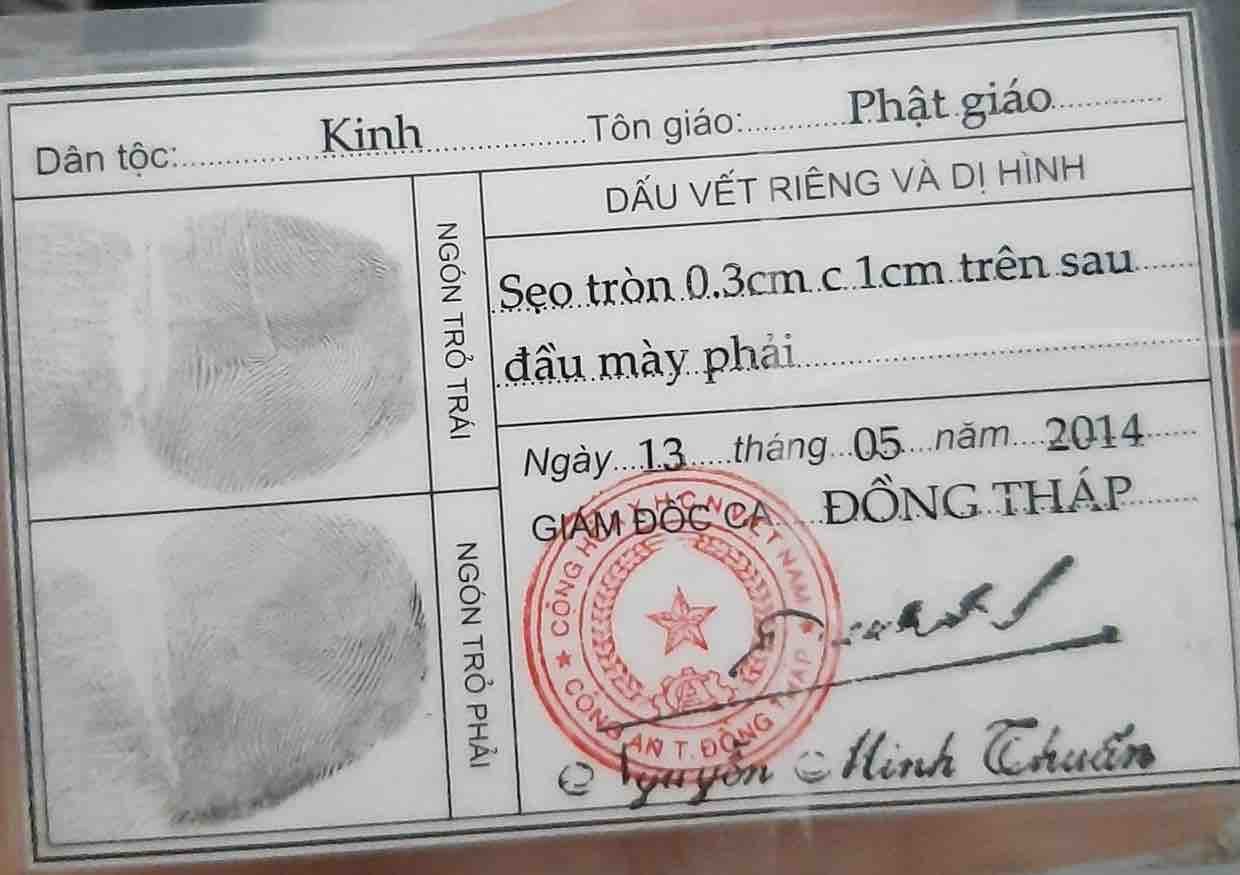 Dân tộc: Kinh Tôn giáo: Phật giáo
NGÓN TRỎ TRÁI
DẤU VẾT RIÊNG VÀ DỊ HÌNH
Sẹo tròn 0.3cm c 1cm trên sau
đầu mày phải
NGÓN TRỎ PHẢI
Ngày 13 tháng 05 năm 2014
GIÁM ĐỐC CA ĐỒNG THÁP
CỘNG HÒA XHCN VIỆT NAM
CÔNG AN T. ĐỒNG THÁP
Nguyễn Minh Thuấn